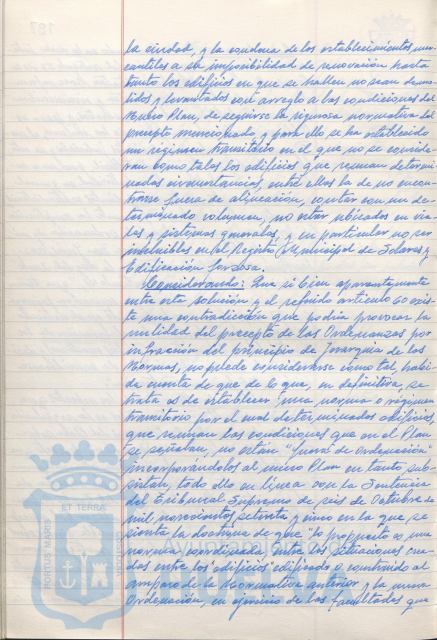 la ciudad, y la condena de los establecimientos mer-
cantiles a su imposibilidad de renovación hasta
tanto los edificios en que se hallen no sean demo-
lidos y levantados con arreglo a las condiciones del
Nuevo Plan, de seguirse la rigurosa normativa del
precepto mencionado, y para ello se ha establecido
un régimen transitorio en el que no se conside-
ran como tales los edificios que reunan determi-
nadas circunstancias, entre ellas la de no encon-
trarse fuera de alineación, contar con un de-
terminado volumen, no estar ubicados en via-
les y sistemas generales, y en particular no ser
incluibles en el Registro Municipal de Solares y
Edificación forzosa.
Considerando: Que si bien aparentemente
entre esta solución y el referido artículo 60 exis-
te una contradicción que podría provocar la
nulidad del precepto de las Ordenanzas por
infracción del principio de Jerarquía de las
Normas, no puede considerarse como tal habi-
da cuenta de que de lo que, en definitiva, se
trata es de establecer una norma o régimen
transitorio por el cual determinados edificios,
que reunan las condiciones que en el Plan
se señalan, no están "fuera de Ordenación"
incorporándolos al nuevo Plan en tanto sub-
sistan, todo ello en línea con la Sentencia
del Tribunal Supremo de seis de Octubre de
mil novecientos setenta y cinco en la que se
sienta la doctrina de que "lo propuesto es una
norma coordinada entre las situaciones crea-
das entre los edificios edificado o construido al
amparo de la Normativa anterior, y la nueva
Ordenación, en ejercicio de las facultades que
PORTUS MARIS ET TERRAE